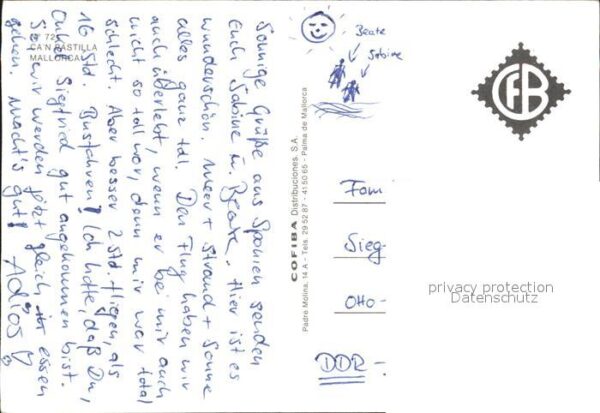 72
CA'N PASTILLA
MALLORCA
Sonnige Grüße aus Spanien senden
Euch Sabine u. Beate. Hier ist es
wunderschön. Meer + Strand + Sonne
alles ganz toll. Den Flug haben wir
auch überlebt, wenn er bei mir auch
nicht so toll war, denn mir war total
schlecht. Aber besser 2 Std. fliegen, als
16 Std. Busfahren! Ich hoffe, daß Du,
Onkel Siegfried gut angekommen bist.
So wir werden jetzt gleich essen
gehen. Macht's gut!
Adios
COFIBA Distribuciones, S.A.
Padre Molina, 14 A - Tels. 29 52 87 - 41 50 65 - Palma de Mallorca
Beate
Sabine
CFB
Fam
Sieg-
Otto-
DDR-
privacy protection
Datenschutz